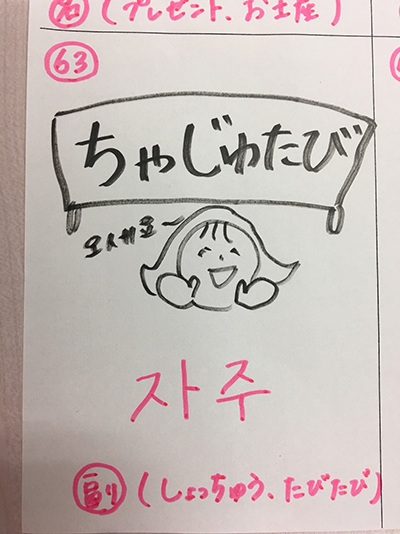 名 (プレゼント、お土産)
63
ちゃじゅたび
오사요~
자주
副 (しょっちゅう、たびたび)